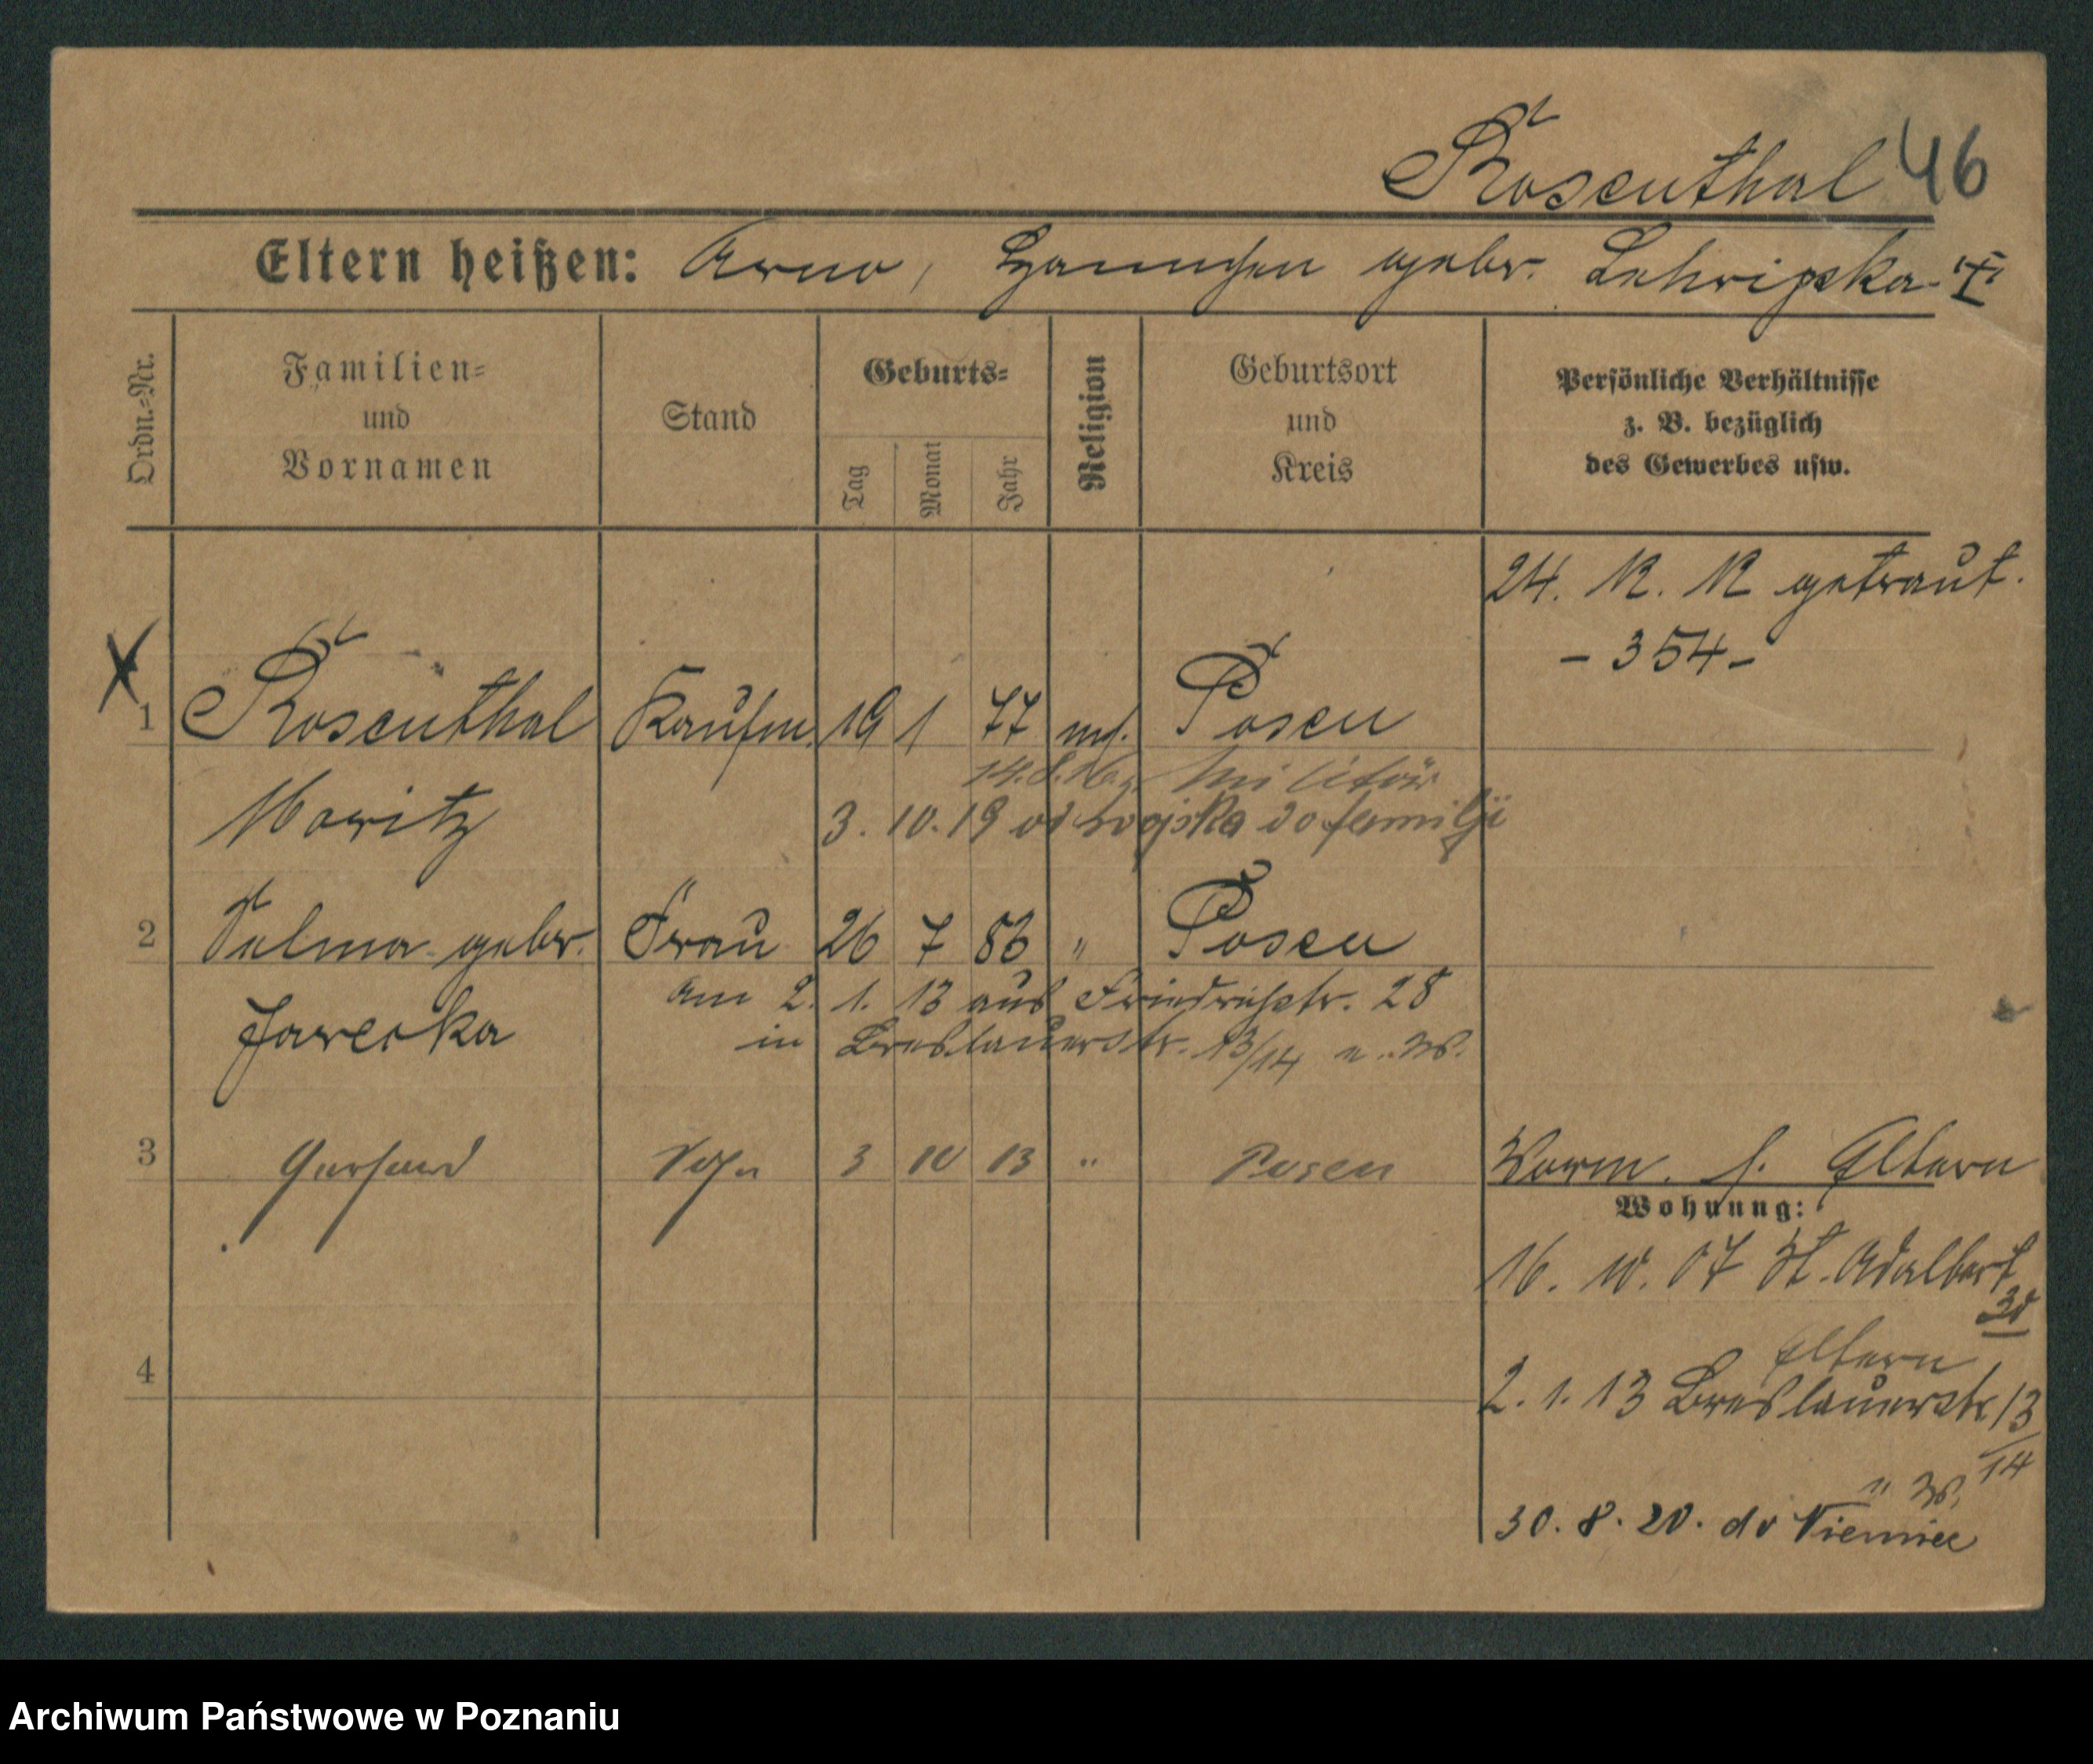 Rosenthal 46
Eltern heißen: Arno, gebr.
Ordn.-Nr.
Familien-
und
Vornamen
Stand
Geburts-
Tag
Monat
Jahr
Religion
Geburtsort
und
Kreis
Persönliche Verhältnisse
z. B. bezüglich
des Gewerbes usw.
24. 12. 12 getraut.
- 354 -
X
1 Rosenthal Kaufm. 19 1 77 mos. Posen
14. 8. 16 Militär
Moritz 3. 10. 19 od wojska do familji
2 Selma gebr. Frau 26 7 86 " Posen
am 2. 1. 13 aus Friedrichstr. 28
Jarecka in Breslauerstr. 13/14 u. W.
3 Gerhard Sohn 3 10 13 " Posen
Vorm. s. Eltern
Wohnung:
16. 10. 07 St. Adalbert
Eltern
2. 1. 13 Breslauerstr 13/14
" W.
30. 8. 20. do Niemiec
Archiwum Państwowe w Poznaniu